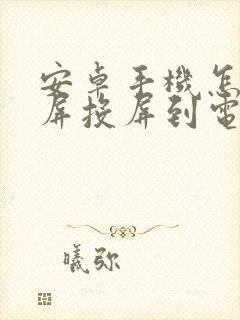 安卓手機怎
屏投屏到電
曦弥